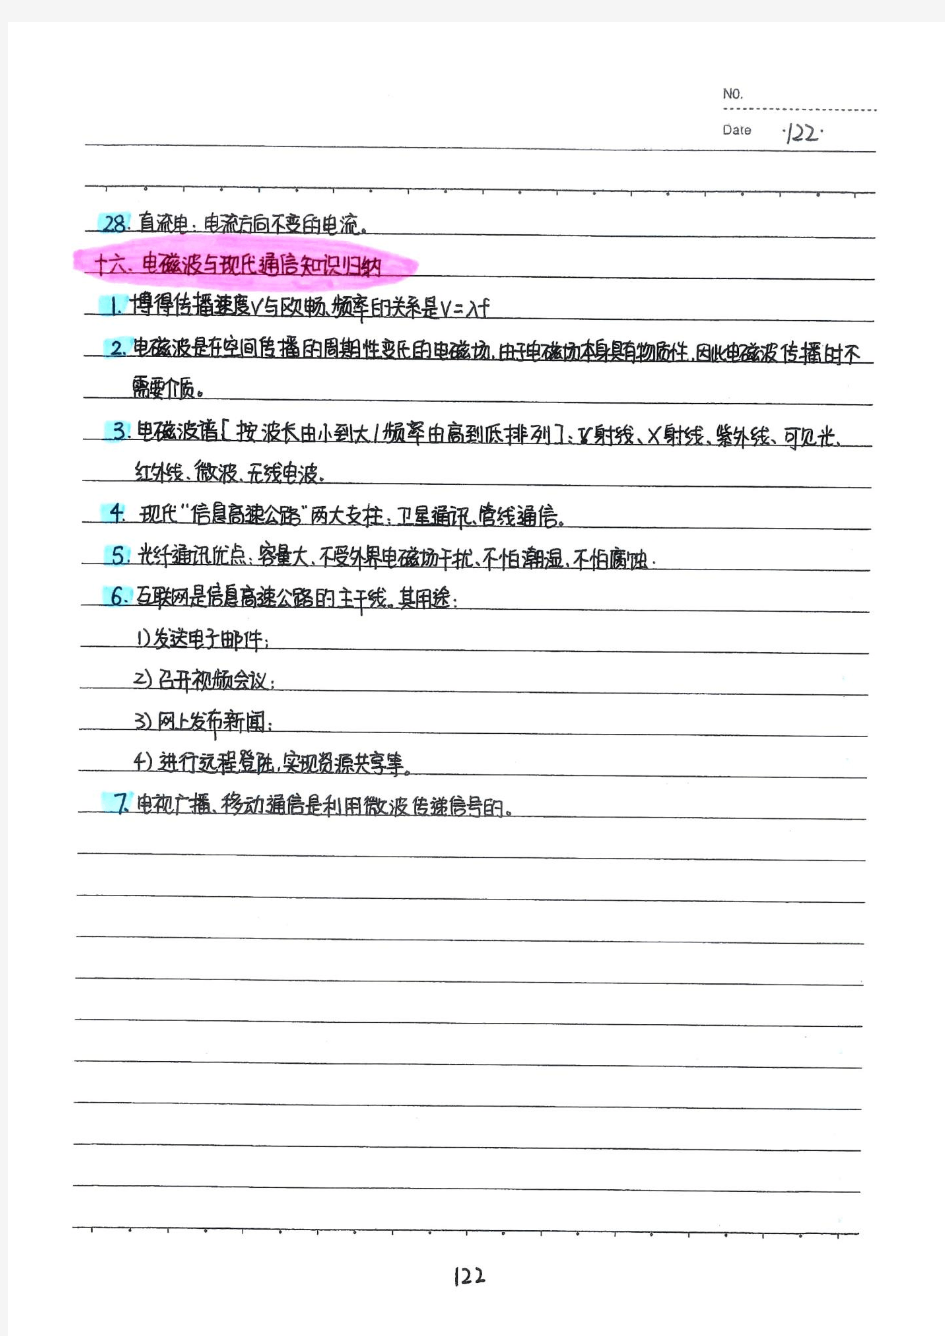 NO.
Date ·122·
28. 直流电：电流方向不变的电流。
十六、电磁波与现代通信知识归纳
1. 博得传播速度V与欧畅、频率的关系是V=λf
2. 电磁波是在空间传播的周期性变化的电磁场，由于电磁场本身具有物质性，因此电磁波传播时不
需要介质。
3. 电磁波谱[按波长由小到大/频率由高到低排列]：γ射线、X射线、紫外线、可见光、
红外线、微波、无线电波。
4. 现代“信息高速公路”两大支柱：卫星通讯、管线通信。
5. 光纤通讯优点：容量大、不受外界电磁场干扰、不怕潮湿、不怕腐蚀.
6. 互联网是信息高速公路的主干线。其用途：
1)发送电子邮件；
2)召开视频会议；
3)网上发布新闻；
4)进行远程登陆，实现资源共享等。
7、电视广播、移动通信是利用微波传递信号的。
122